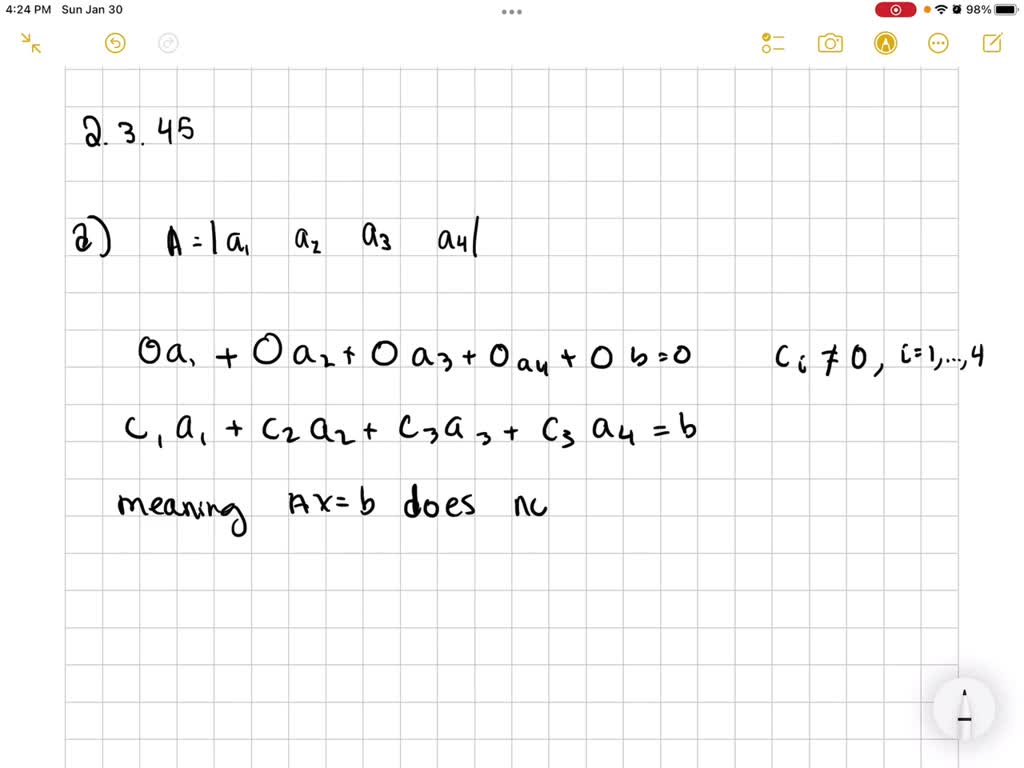 4:24 PM Sun Jan 30
98%
2.3.45
a) A = | a₁ a₂ a₃ a₄ |
0a₁ + 0a₂ + 0a₃ + 0a₄ + 0b = 0 Cᵢ ≠ 0, i=1,...,4
c₁a₁ + c₂a₂ + c₃a₃ + c₃a₄ = b
meaning Ax=b does no